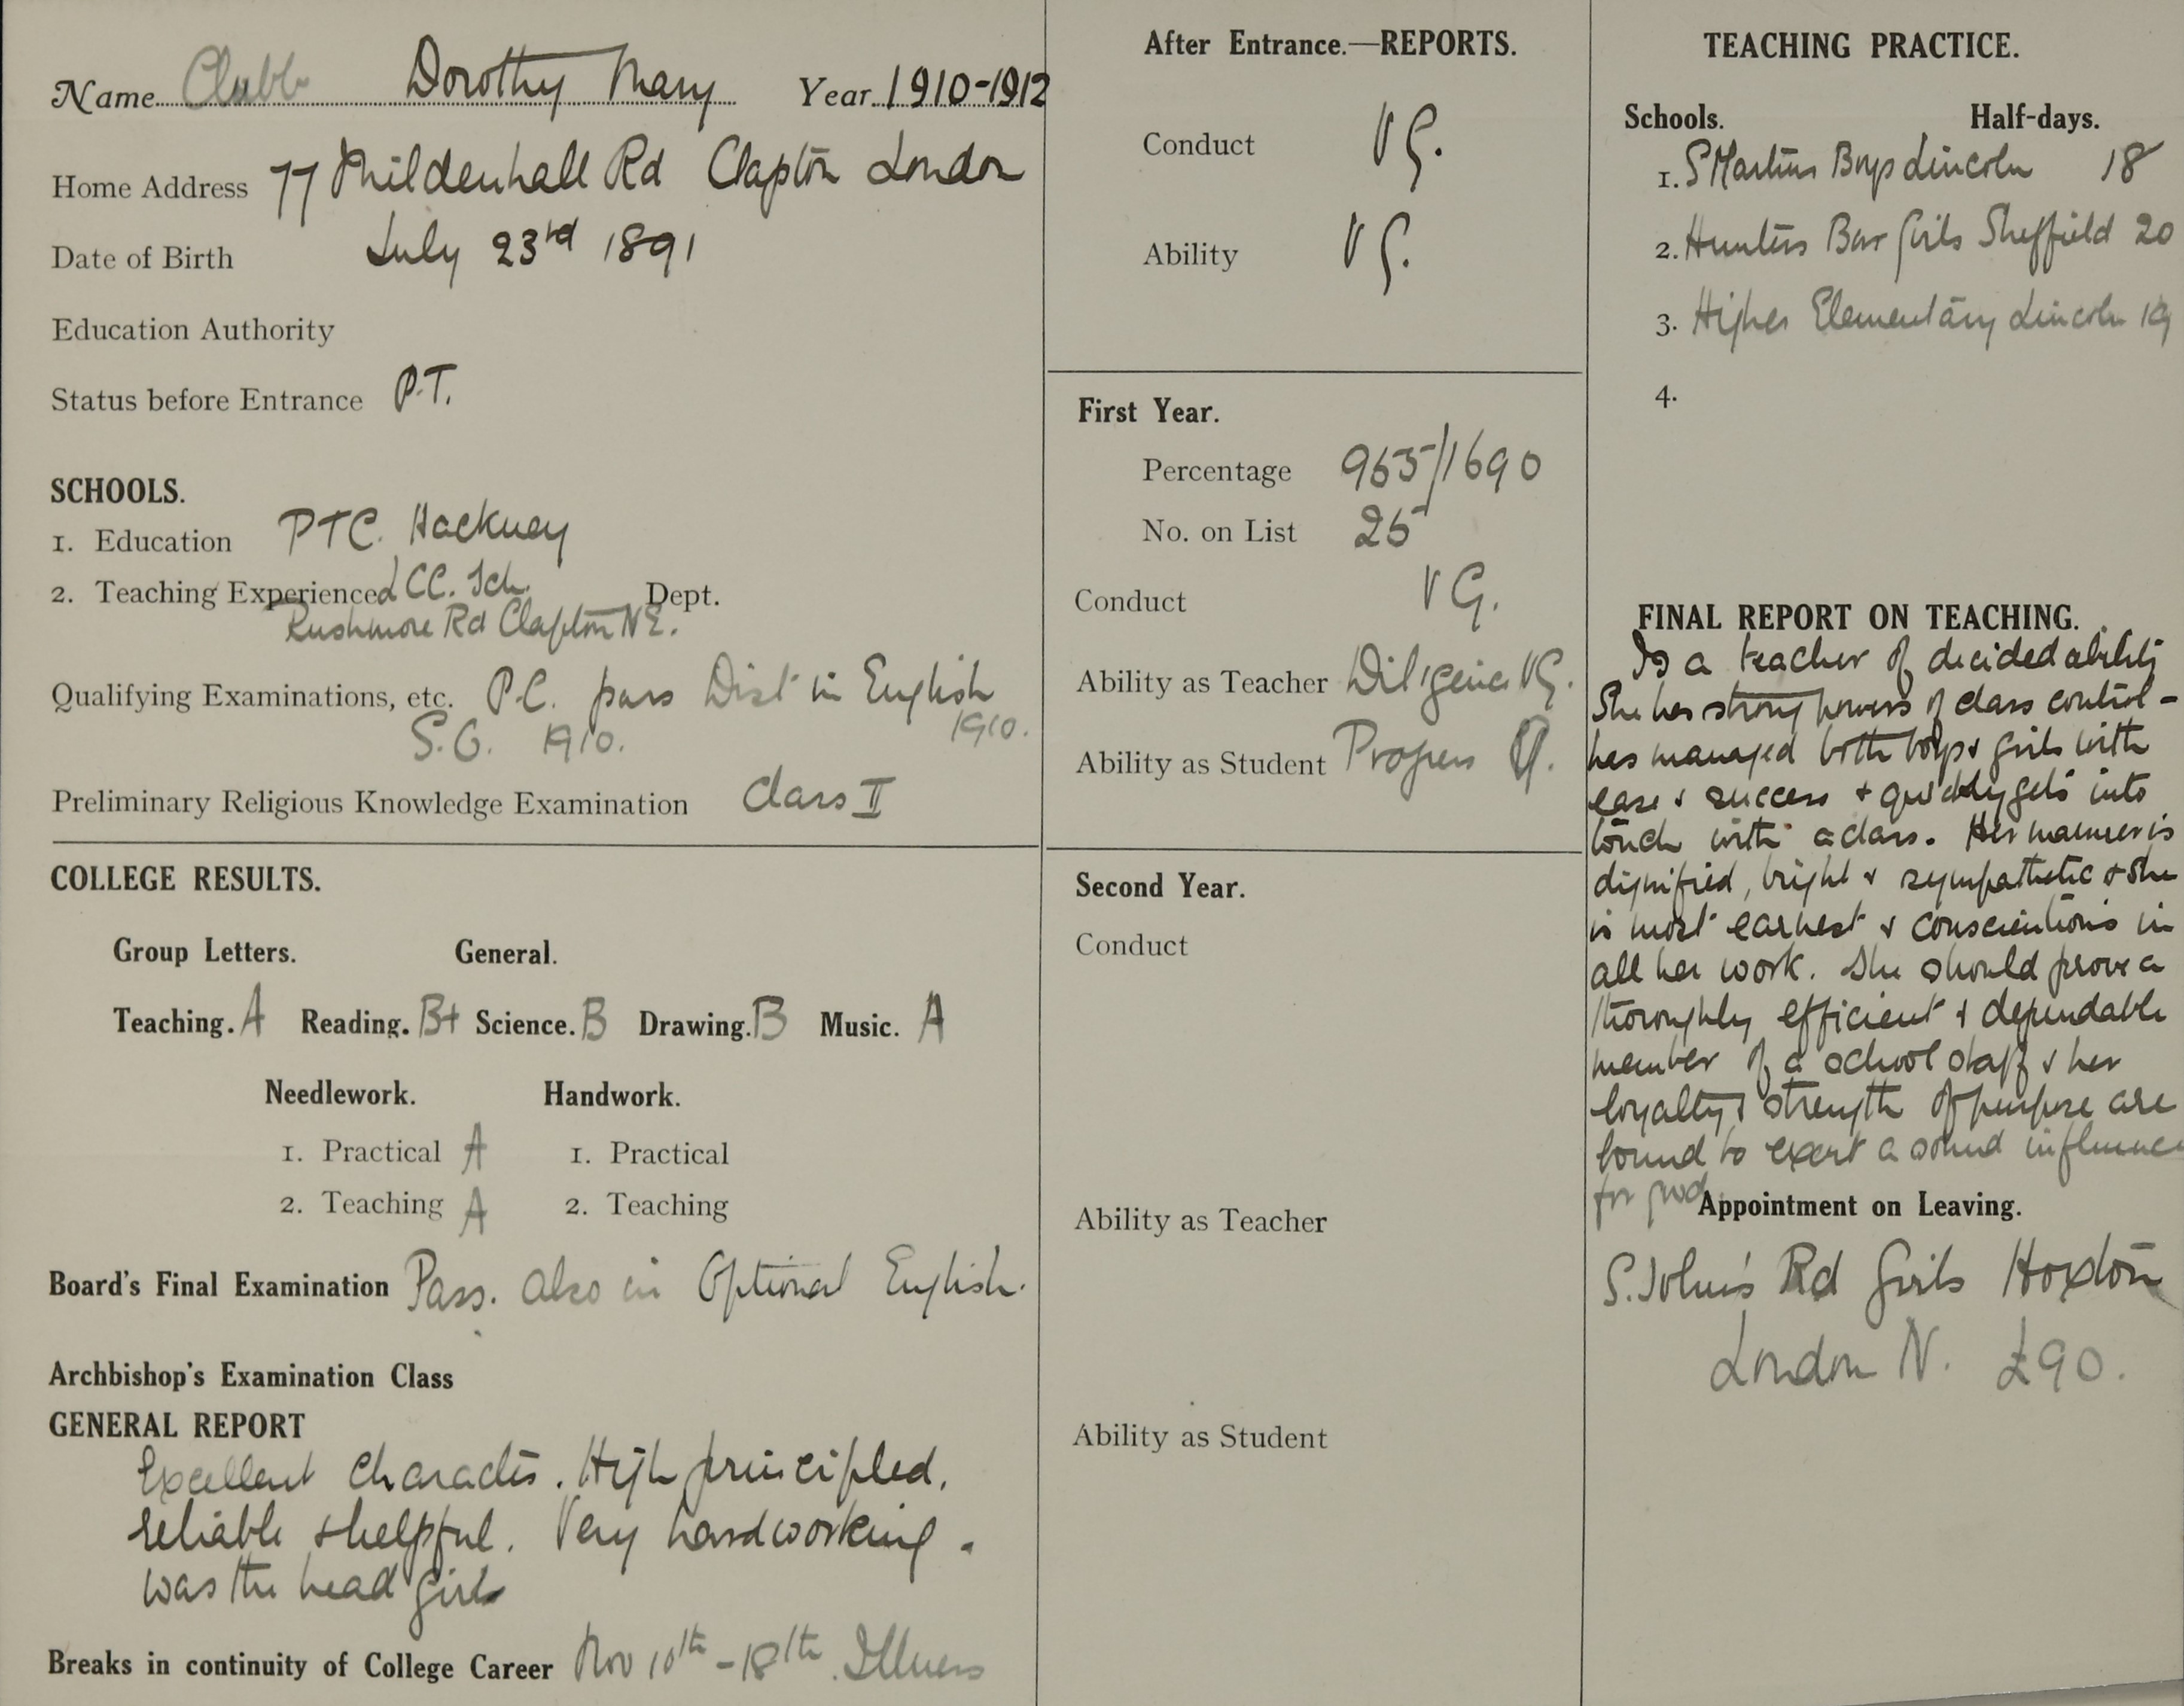 Name Clubb Dorothy Mary Year 1910-1912
Home Address 77 Mildenhall Rd Clapton London
Date of Birth July 23rd 1891
Education Authority
Status before Entrance P.T.
SCHOOLS.
1. Education PTC. Hackney
2. Teaching Experienced LCC. Sch. Dept.
Rushmore Rd Clapton NE.
Qualifying Examinations, etc. P.C. pass Dist in English
S.G. 1910. 1910.
Preliminary Religious Knowledge Examination Class II
COLLEGE RESULTS.
Group Letters. General.
Teaching. A Reading. B+ Science. B Drawing. B Music. A
Needlework. Handwork.
1. Practical A 1. Practical
2. Teaching A 2. Teaching
Board's Final Examination Pass. also in Optional English.
Archbishop's Examination Class
GENERAL REPORT
Excellent character. High principled,
reliable & helpful. Very hardworking.
was the head girl
Breaks in continuity of College Career Nov 10th - 18th. Illness
After Entrance.—REPORTS.
Conduct VG.
Ability VG.
First Year.
Percentage 965/1690
No. on List 25
Conduct VG.
Ability as Teacher Diligence VG.
Ability as Student Progress G.
Second Year.
Conduct
Ability as Teacher
Ability as Student
TEACHING PRACTICE.
Schools. Half-days.
1. S Martins Boys Lincoln 18
2. Hunters Bar Girls Sheffield 20
3. Higher Elementary Lincoln 19
4.
FINAL REPORT ON TEACHING.
Is a teacher of decided ability
She has strong powers of class control -
has managed both boys & girls with
ease & success & quickly gets into
touch with a class. Her manner is
dignified, bright & sympathetic & she
is most earnest & conscientious in
all her work. She should prove a
thoroughly efficient & dependable
member of a school staff & her
loyalty & strength of purpose are
bound to exert a sound influence
for good
Appointment on Leaving.
S. John's Rd Girls Hoxton
London N. £90.